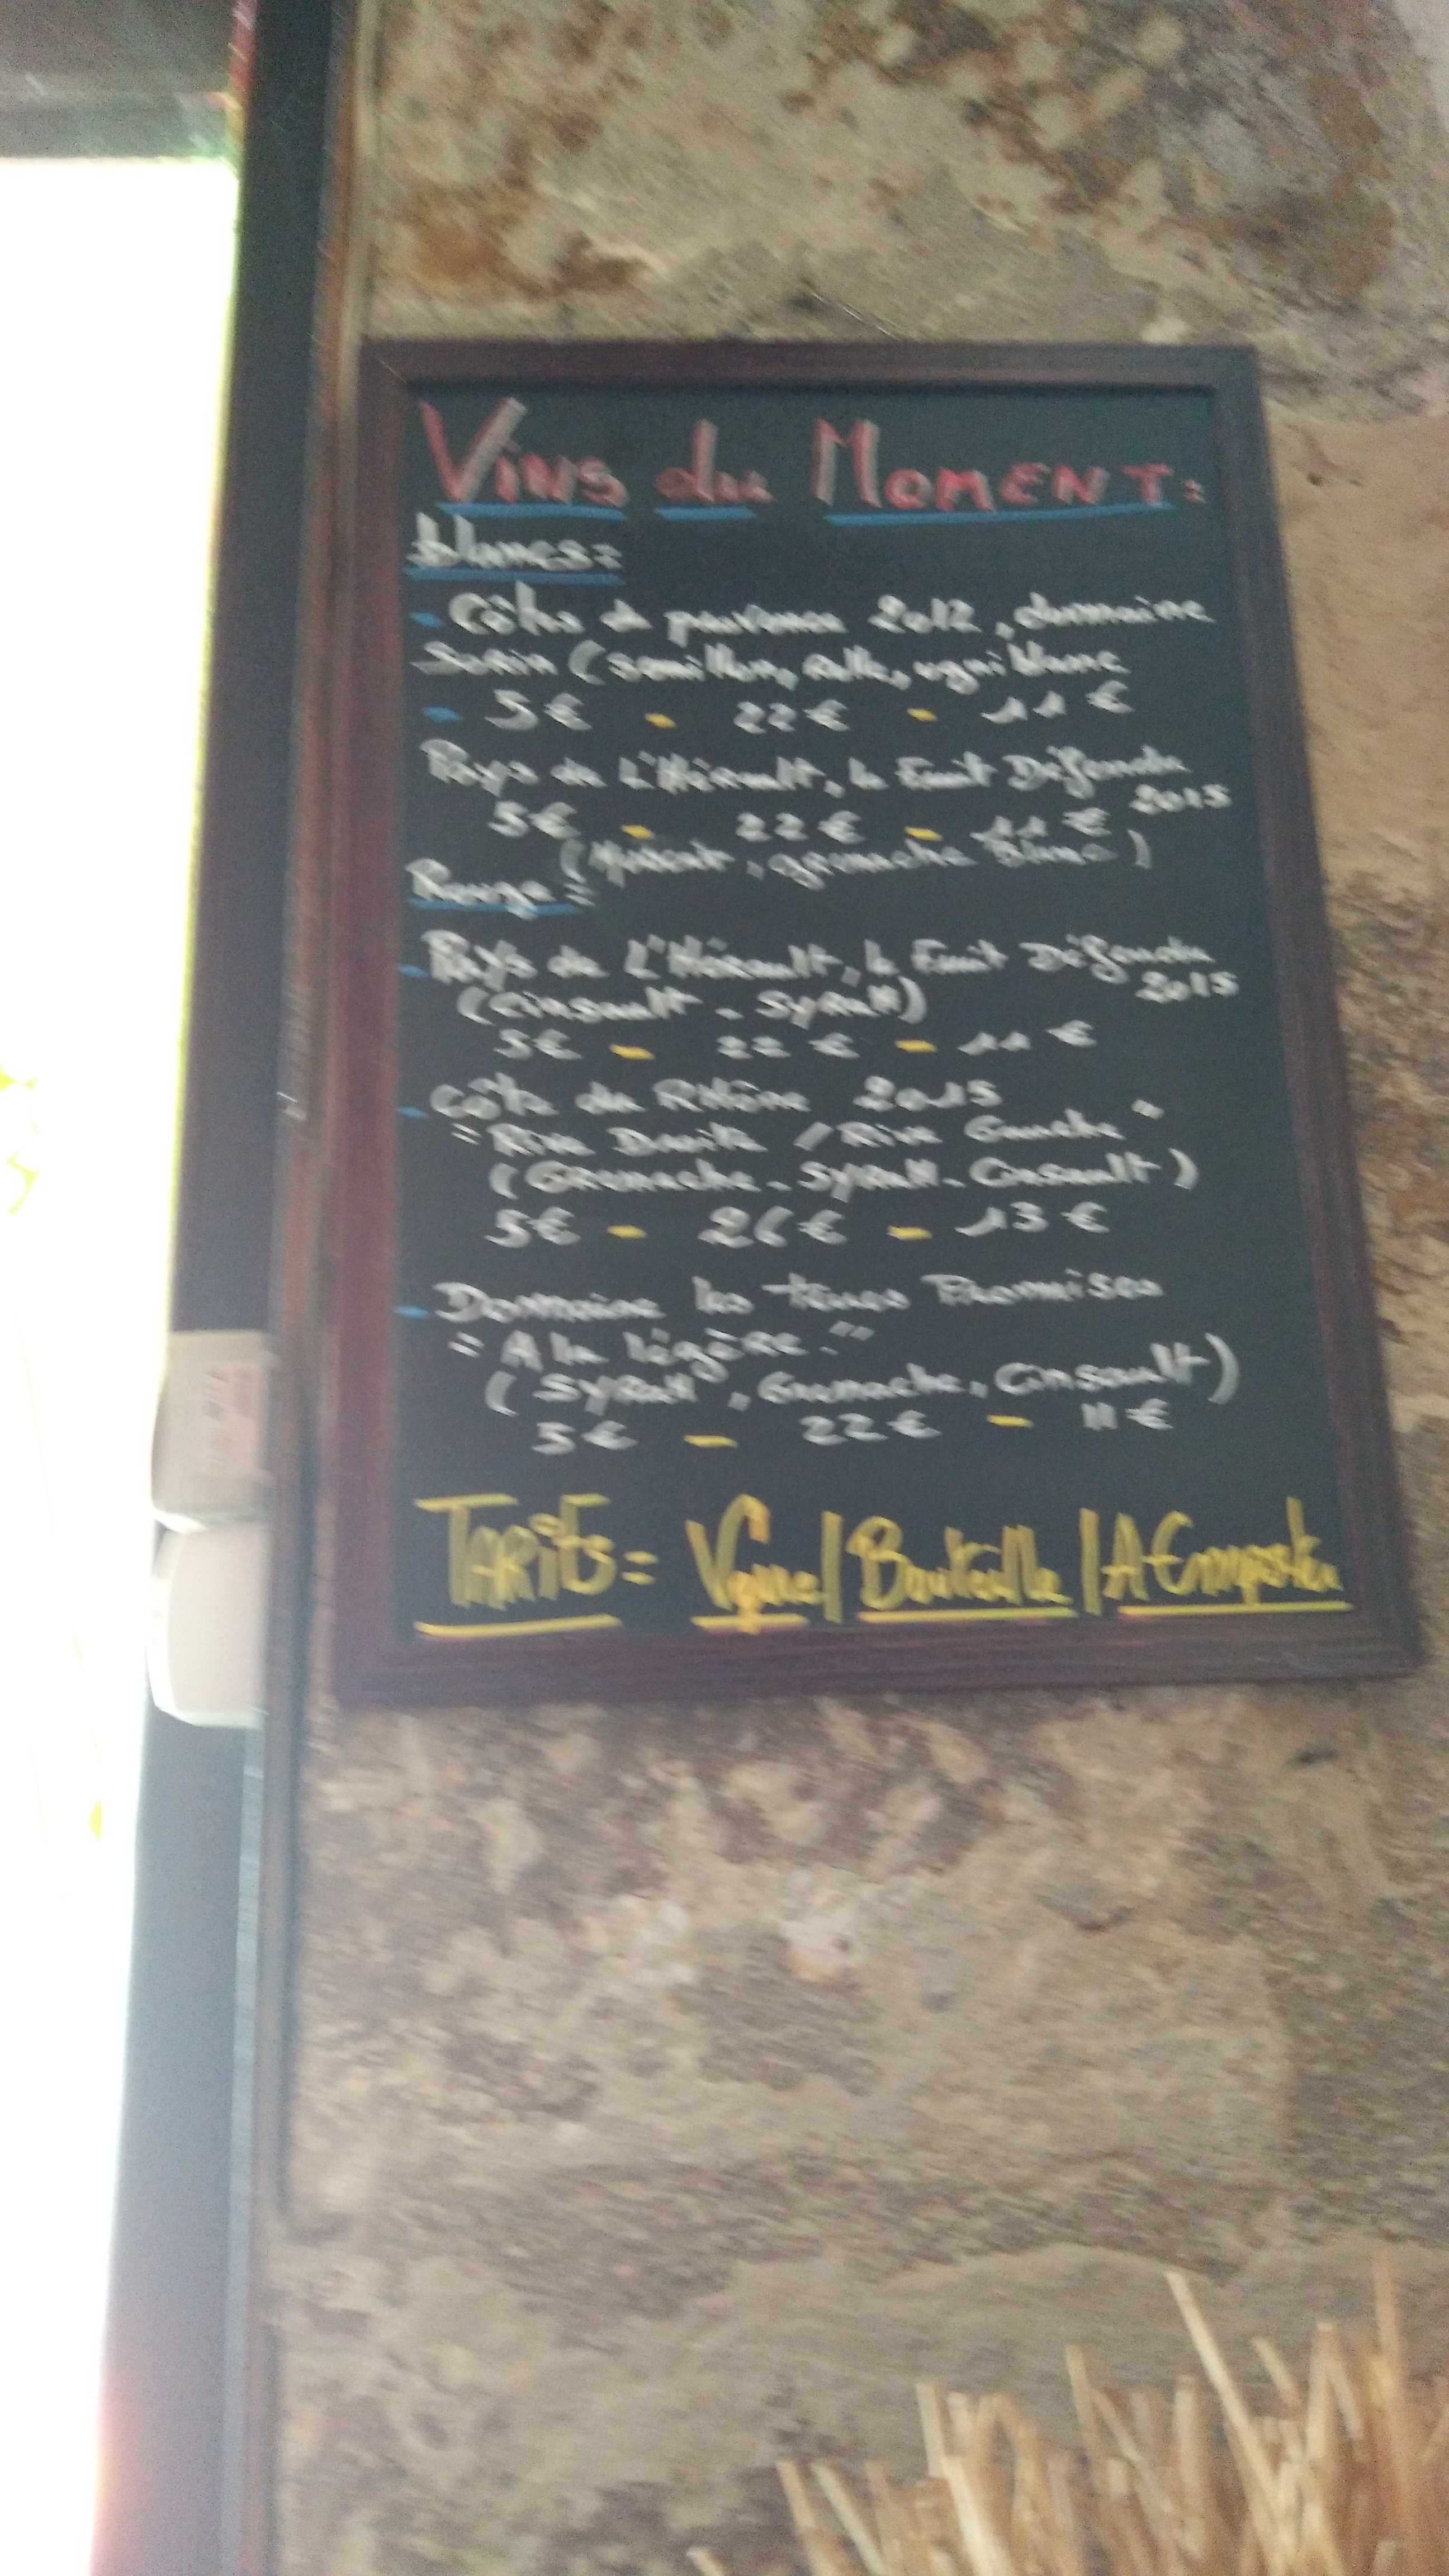 Vins du Moment:
blancs:
- Côtes de provence 2012, dommaine
Sorin (semillon, rolle, ugni blanc
- 5€ - 22€ - 11€
Pays de L'Hérault, le Fruit Défendu
2015
5€ - 22€ - 11€
(Muscat, grenache Blanc)
Rouge:
- Pays de L'Hérault, le Fruit Défendu
2015
(Cinsault - Syrah)
5€ - 22€ - 11€
- Côte du Rhône 2015
"Rive Droite / Rive Gauche"
(Grenache - Syrah - Cinsault)
5€ - 26€ - 13€
- Domaine les terres Promises
"A la légère"
(Syrah, Grenache, Cinsault)
5€ - 22€ - 11€
TARiFs: Verre / Bouteille / A Emporter